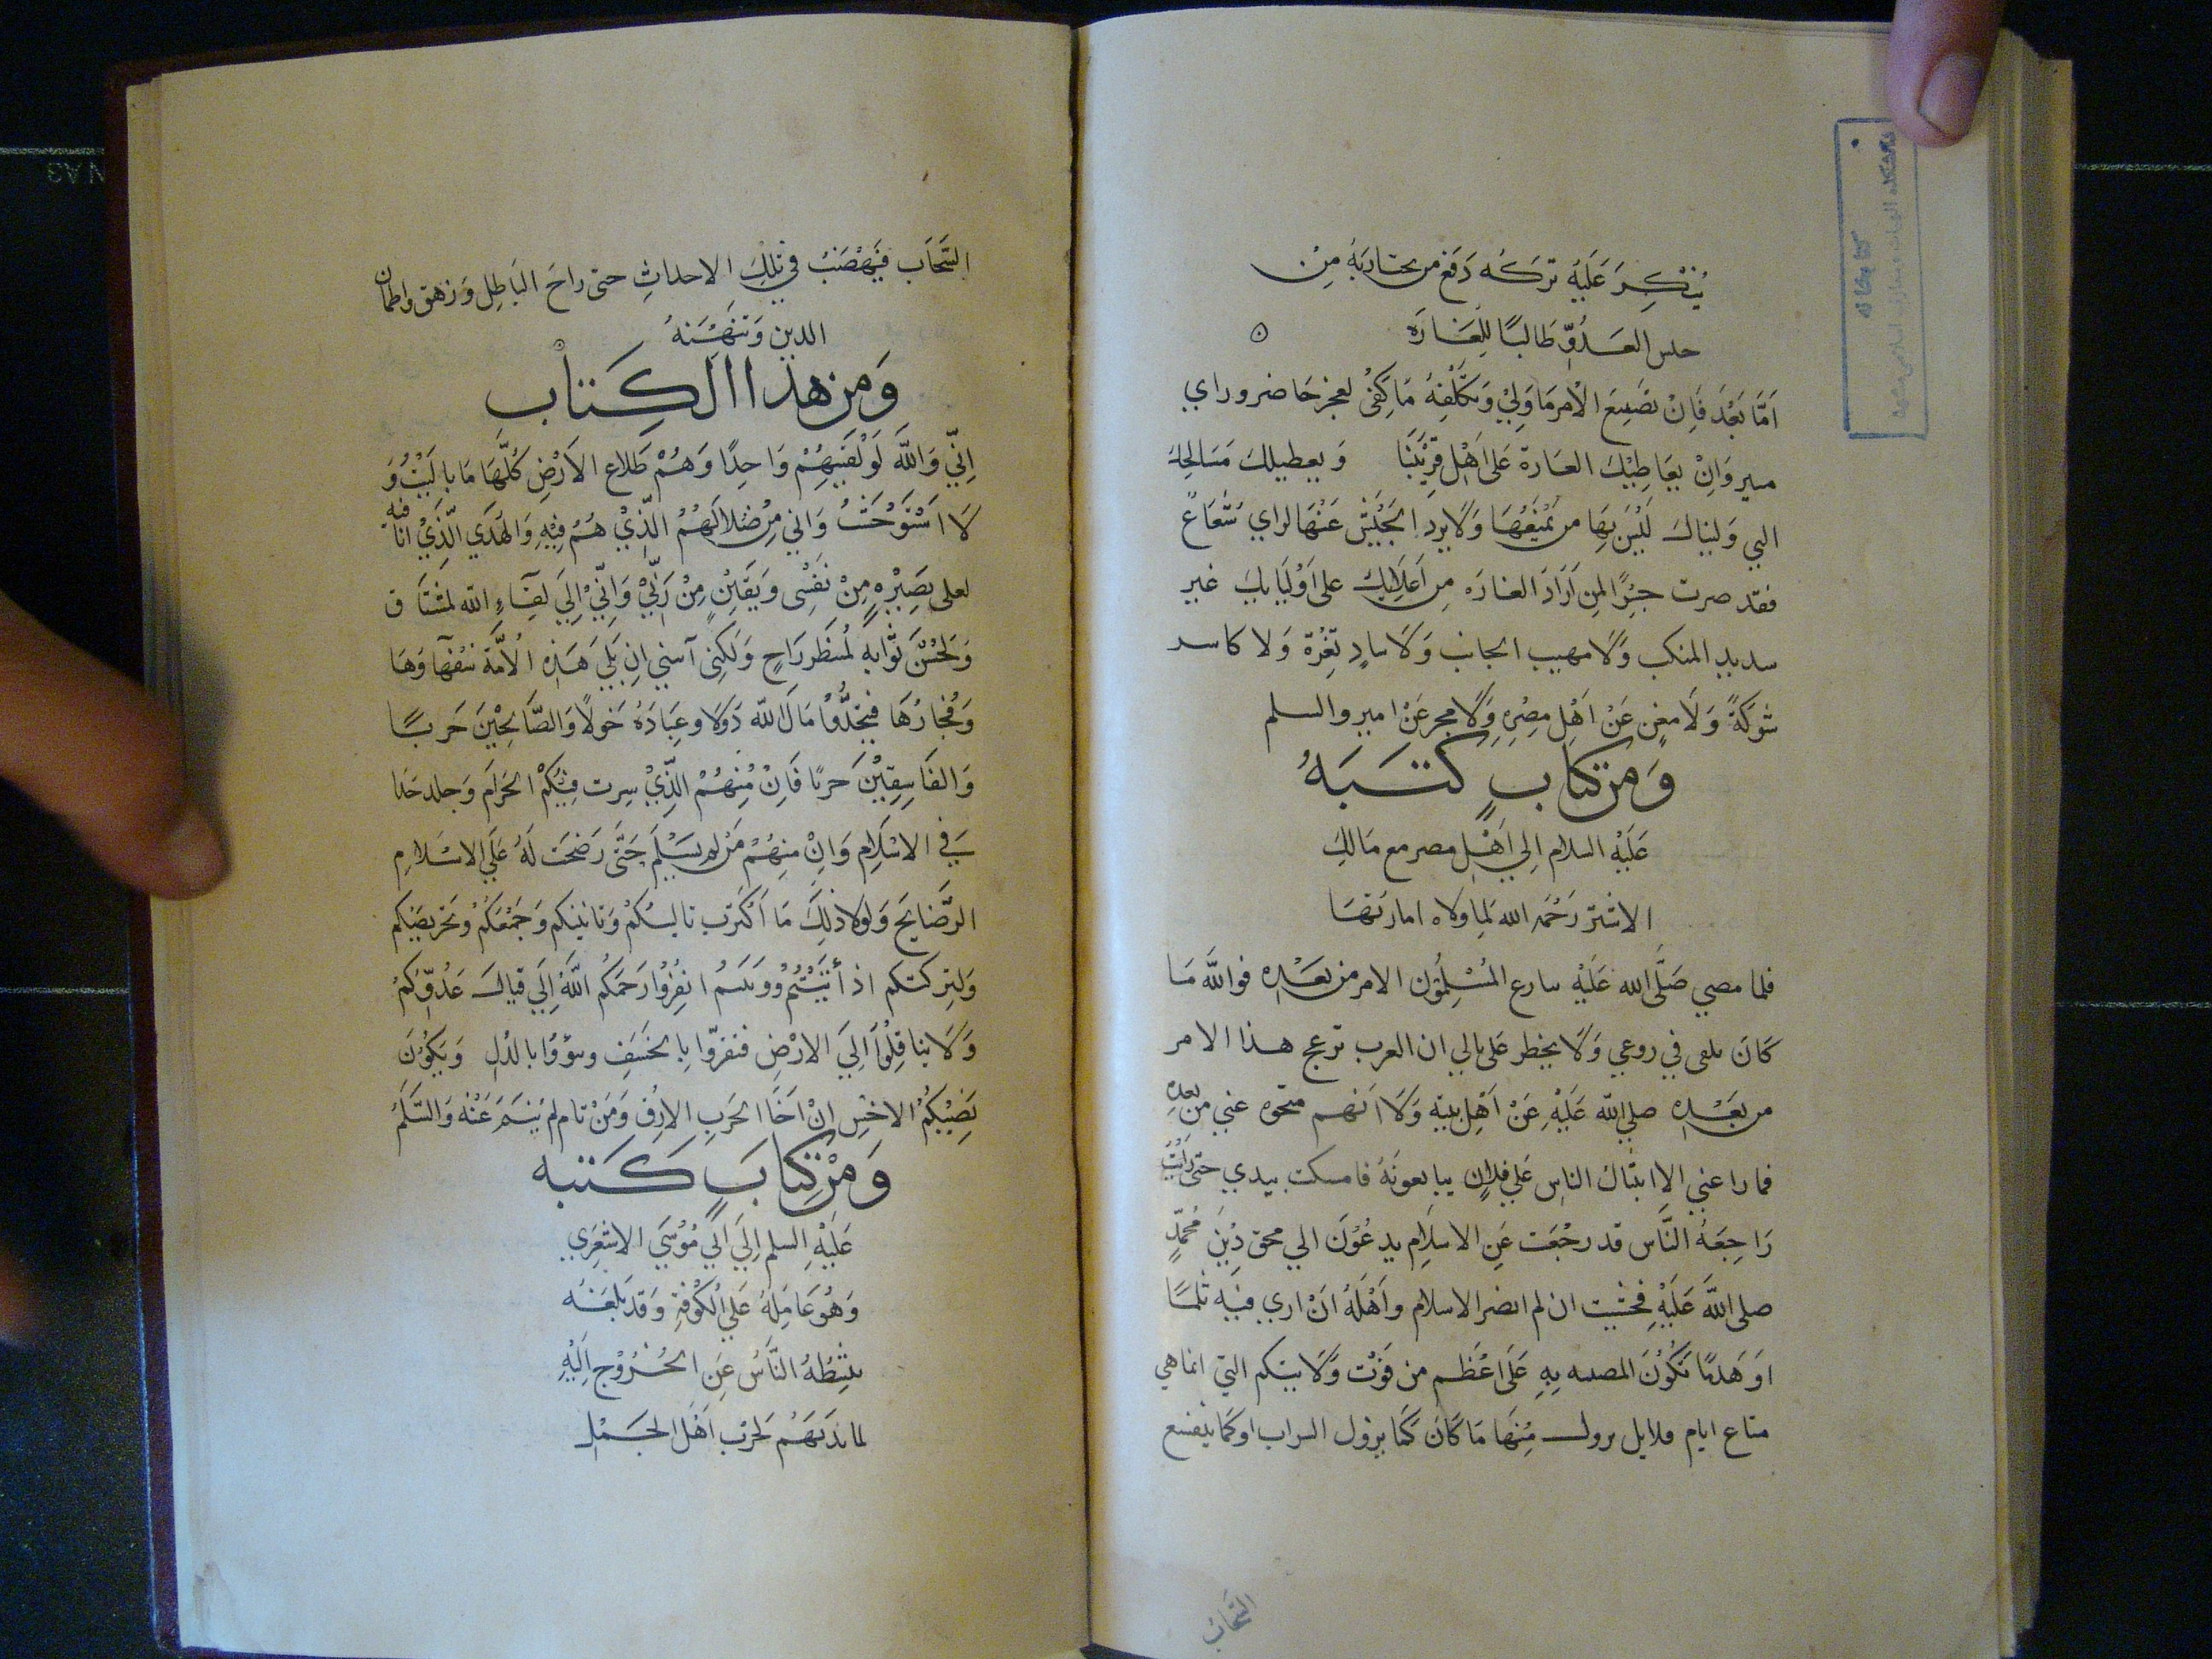 يُنْكِرَ عَلَيْهُ تركَه دَفع من يحتاربَهُ مِنْ
حلس العَدُوّ طَالبًا لِلغَارَه
اَمَّا بَعْدَ فَاِنْ تضَييعَ الْأمرمَا وَلِيْ وَتَكَلّفِهُ مَا كَفْى لعجز حَاضر وراي
مسير وَاِنْ يعَاطِيْكَ الغارة عَلى اَهْل قرْيَنَا وَيعطيلكَ مَسَالحِكَ
التي وَليناكَ لَيْسَ بِهَا من يَمْنَعُهَا وَلَا يرد الجَيْش عَنْهَا لراي شَعَاعٌ
فقد صرت جسْرًا لِمن اَرَادَ الغارَه مِن اَعدَايِك على اَوْليَايكَ غير
سديد المنكب وَلَا مهيب الجانب وَلَا سادٍ ثغْرَة وَلا كاسر
شوكَةً وَلَا مغنٍ عَنْ اَهْلِ مِصْرِهِ وَلَا مجرعَنْ امير والسلم
وَمن كتابٍ كَتَبَهُ
عَلَيْهِ السلام اِلي اَهْل مصر مع مَالكِ
الاشتر رَحْمَه الله لما ولاه امارتهَا
فلما مضي صَلَّى الله عَلَيْهِ سارع المُسْلِمُون الامر من بَعْدِه فوالله مَا
كَانَ يلقى في روعي وَلَا يخطر عَلى بالي ان العرب ترعج هذا الامر
من بَعْدِه صلي الله عَلَيْهِ عَنْ اَهْلِ بيته وَلَا انهم منحوه عني من بعده
فما راعني الا انثيال الناس عَلي فلانٍ يبايعونَهُ فامسكت بيدي حتى رَاَيْتُ
رَاجِعَة النَّاس قد رجُعَت عَنِ الاسلام يدعُوْنَ الي محق دِيْنِ مُحَمّدٍ
صلى اللهَ عَلَيْهِ فخشيت ان لم انصر الاسلام وَاَهْلَهُ اَنْ اري فيه ثلمًا
اوَ هَدمًا تَكُوْنَ المصيبه بِهِ عَلَى اَعْظَم من فَوْت وَلَايتكم التي انما هي
متاع ايام قلايل يزول مِنْهَا مَا كَانَ كَمَا يزول السراب اوكَمَا يتقشع
السَّحَاب
السَّحَاَب فَنَهَضتُ في تِلْكِ الاحداثِ حتى راحَ البَاطِل وَزهق واطمان
الدين وَتَنَهْنَهُ
وَمِن هذا الكِتابِ
اِنّي وَاللهَ لَوْلقيتهُمْ وَاحِدًا وَهُمْ طَلاع الاَرْضِ كُلّهَا مَا بَاليْتُ وَ
لَا اسْتَوْحَشْتُ وَاِني مِنْ ضلالهُمُ الّذِيْ هُمْ فِيْهِ وَالهُدَي الّذِيْ انا فيه
لعلى بَصِيْرَهٍ مِنْ نَفْسِي وَيَقَينٍ مِنْ رَبِّيْ وَاِنّيْ اِلَي لِقَاءِ الله لمشتَاق
وَلحُسْنَ ثَوَابه لمُنتظر رَاجٍ وَلكِنى آسني ان يَلِيَ هَذِهِ الاُمَّة سُفهَآوهَا
وَفُجارُهَا فيتخذُوُا مَالَ الله دَولًا وعِبَادَهُ خَولًا وَالصَّالحِيْنَ حَربًا
وَالفَاسِقِيْنَ حربًا فَاِنْ مِنهُمْ الّذِيْ شِرب فِيْكمْ الحَرَامَ وَجلد حَدا
في الاسْلَامِ وَاِنْ مِنهُمْ مَنْ لم يُسْلم حَتّى رَضخت لَهُ عَلَي الاسْلَامِ
الرَّضايخ وَلولا ذلِكَ مَا اَكثرت تاليبكُمْ وَتانيبكم وَجَمْعَكُمْ وتحريضَكم
وَلتركتكم اذ أبَيْتُمْ وونيتم انفِرُوْا رَحمَكُم اللهَ اِلَى قتالَ عَدُوّكُمْ
وَلَا يثاقلُوْا اَلِيَ الارْضِ فتقرّوا بالخسَفِ وتبؤوْا بالذُلِ وَيَكُوْنَ
نَصِيْبكُمُ الاخسِ اِنْ اَخَا الحَربِ الارِق وَمَنْ نام لم يُنَمْ عَنْه وَالسَّلَمُ
وَمِنْ كتابٍ كَتَبه
عَلَيْهِ السلم اِلَي اَبي مُوْسَي الاشعَرِي
وَهُوَ عَامِلَهُ عَلي الكُوْفةِ وَقَدْ بَلَغَه
تثبِطُهُ النَّاسُ عَن الخُرُوْج اِلَيْهِ
لما نَدَبَهُم لحَرْب اَهْل الجَمَل
كتابخانه